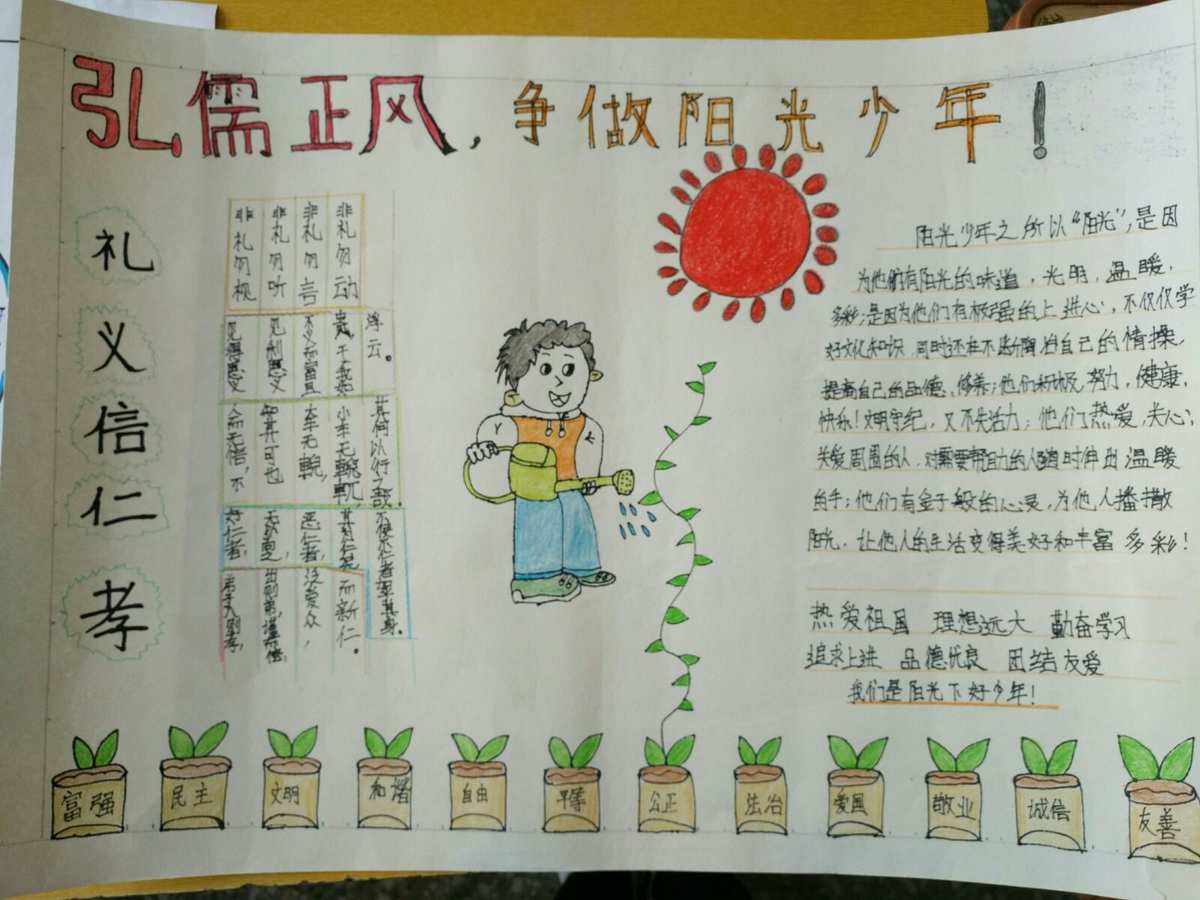 弘儒正风，争做阳光少年！
礼
义
信
仁
孝
非礼勿视
非礼勿听
非礼勿言
非礼勿动
见得思义
见利思义
不义而富且
贵，于我如
浮云。
人而无信，不
知其可也
大车无輗，
小车无軏，
其何以行之哉。
好仁者，
无以尚之，
恶仁者，
其为仁矣
不使不仁者加乎其身。
弟子入则孝，
出则弟，谨而信，
泛爱众，
而亲仁。
阳光少年之所以“阳光”，是因
为他们有阳光的味道，光明，温暖，
多彩；是因为他们有极强的上进心，不仅仅学
好文化知识，同时还在不断陶冶自己的情操，
提高自己的品德、修养；他们积极，努力，健康，
快乐！文明守纪，又不失活力；他们热爱，关心，
关爱周围的人，对需要帮助的人随时伸出温暖
的手；他们有金子般的心灵，为他人播撒
阳光，让他人的生活变得美好和丰富多彩！
热爱祖国 理想远大 勤奋学习
追求上进 品德优良 团结友爱
我们是阳光下好少年！
富强
民主
文明
和谐
自由
平等
公正
法治
爱国
敬业
诚信
友善